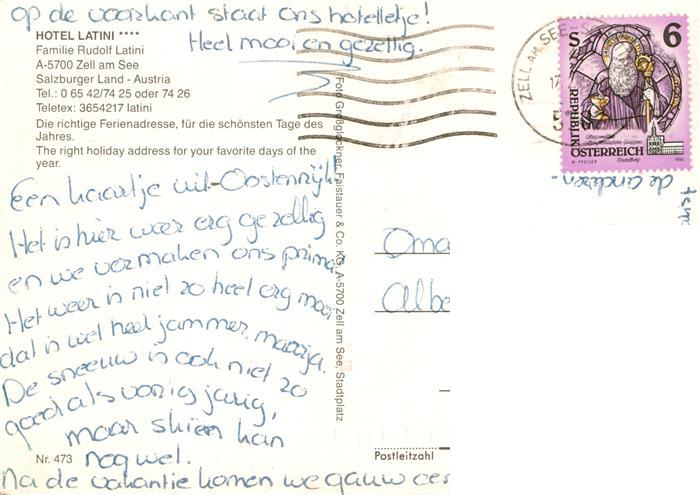 op de voorkant staat ons hotelletje!
Heel mooi en gezellig.
HOTEL LATINI ****
Familie Rudolf Latini
A-5700 Zell am See
Salzburger Land - Austria
Tel.: 0 65 42/74 25 oder 74 26
Teletex: 3654217 latini
Die richtige Ferienadresse, für die schönsten Tage des
Jahres.
The right holiday address for your favorite days of the
year.
Een kaartje uit Oostenrijk!
Het is hier weer erg gezellig
en we vermaken ons prima.
Het weer is niet zo heel erg mooi
dat is wel heel jammer, maarja.
De sneeuw is ook niet zo
goed als vorig jarig,
maar skiën kan
nog wel.
Na de vakantie komen we gauw
Nr. 473
Foto Großglockner, Faistauer & Co. KG, A-5700 Zell am See, Stadtplatz
ZELL AM SEE
17
5
S 6
REPUBLIK
ÖSTERREICH
de anderen-
Oma
Albe
Postleitzahl